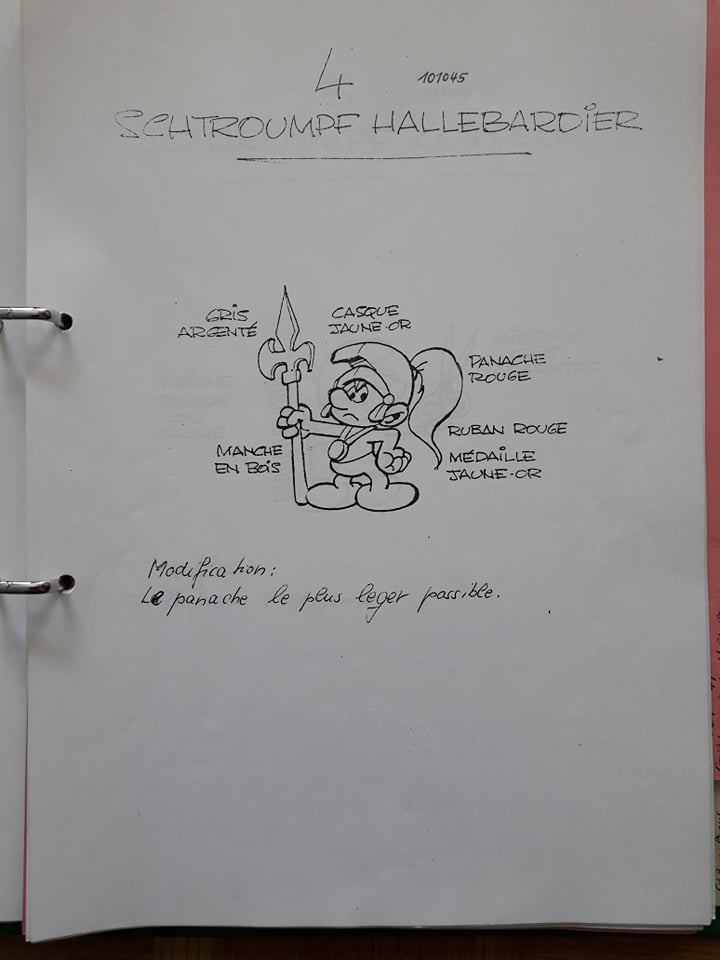 4 101045
SCHTROUMPF HALLEBARDIER
GRIS
ARGENTÉ
CASQUE
JAUNE-OR
PANACHE
ROUGE
RUBAN ROUGE
MANCHE
EN BOIS
MÉDAILLE
JAUNE-OR
Modification:
Le panache le plus leger possible.